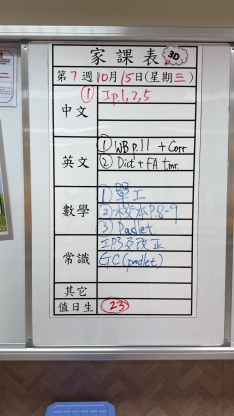 家課表 3D
第7週10月15日(星期三)
中文 ① Ip1,2,5
英文 ① WB P.11 + Corr
② Dict + FA tmr.
數學 ① 單工
② 校本P.8-9
③ Padlet
常識 IP3及改正
GC (padlet)
其它
值日生 23